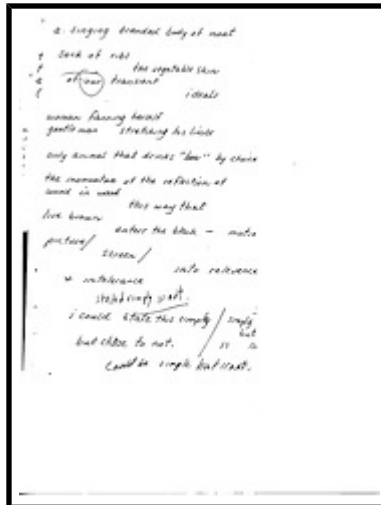 a. singing branded body of meat
sack of ribs
the vegetable skin
of our transient
ideals
woman fanning herself
gentleman stretching his limbs
only animal that drinks "beer" by choice
the momentum of the reflection of
wood in wood
this way that
live brown
enters the black – motion
picture/
screen/
into relevance
intolerance
stated simply is art.
i could state this simply / simply
but
but chose to not. is so
could be simple but is art.